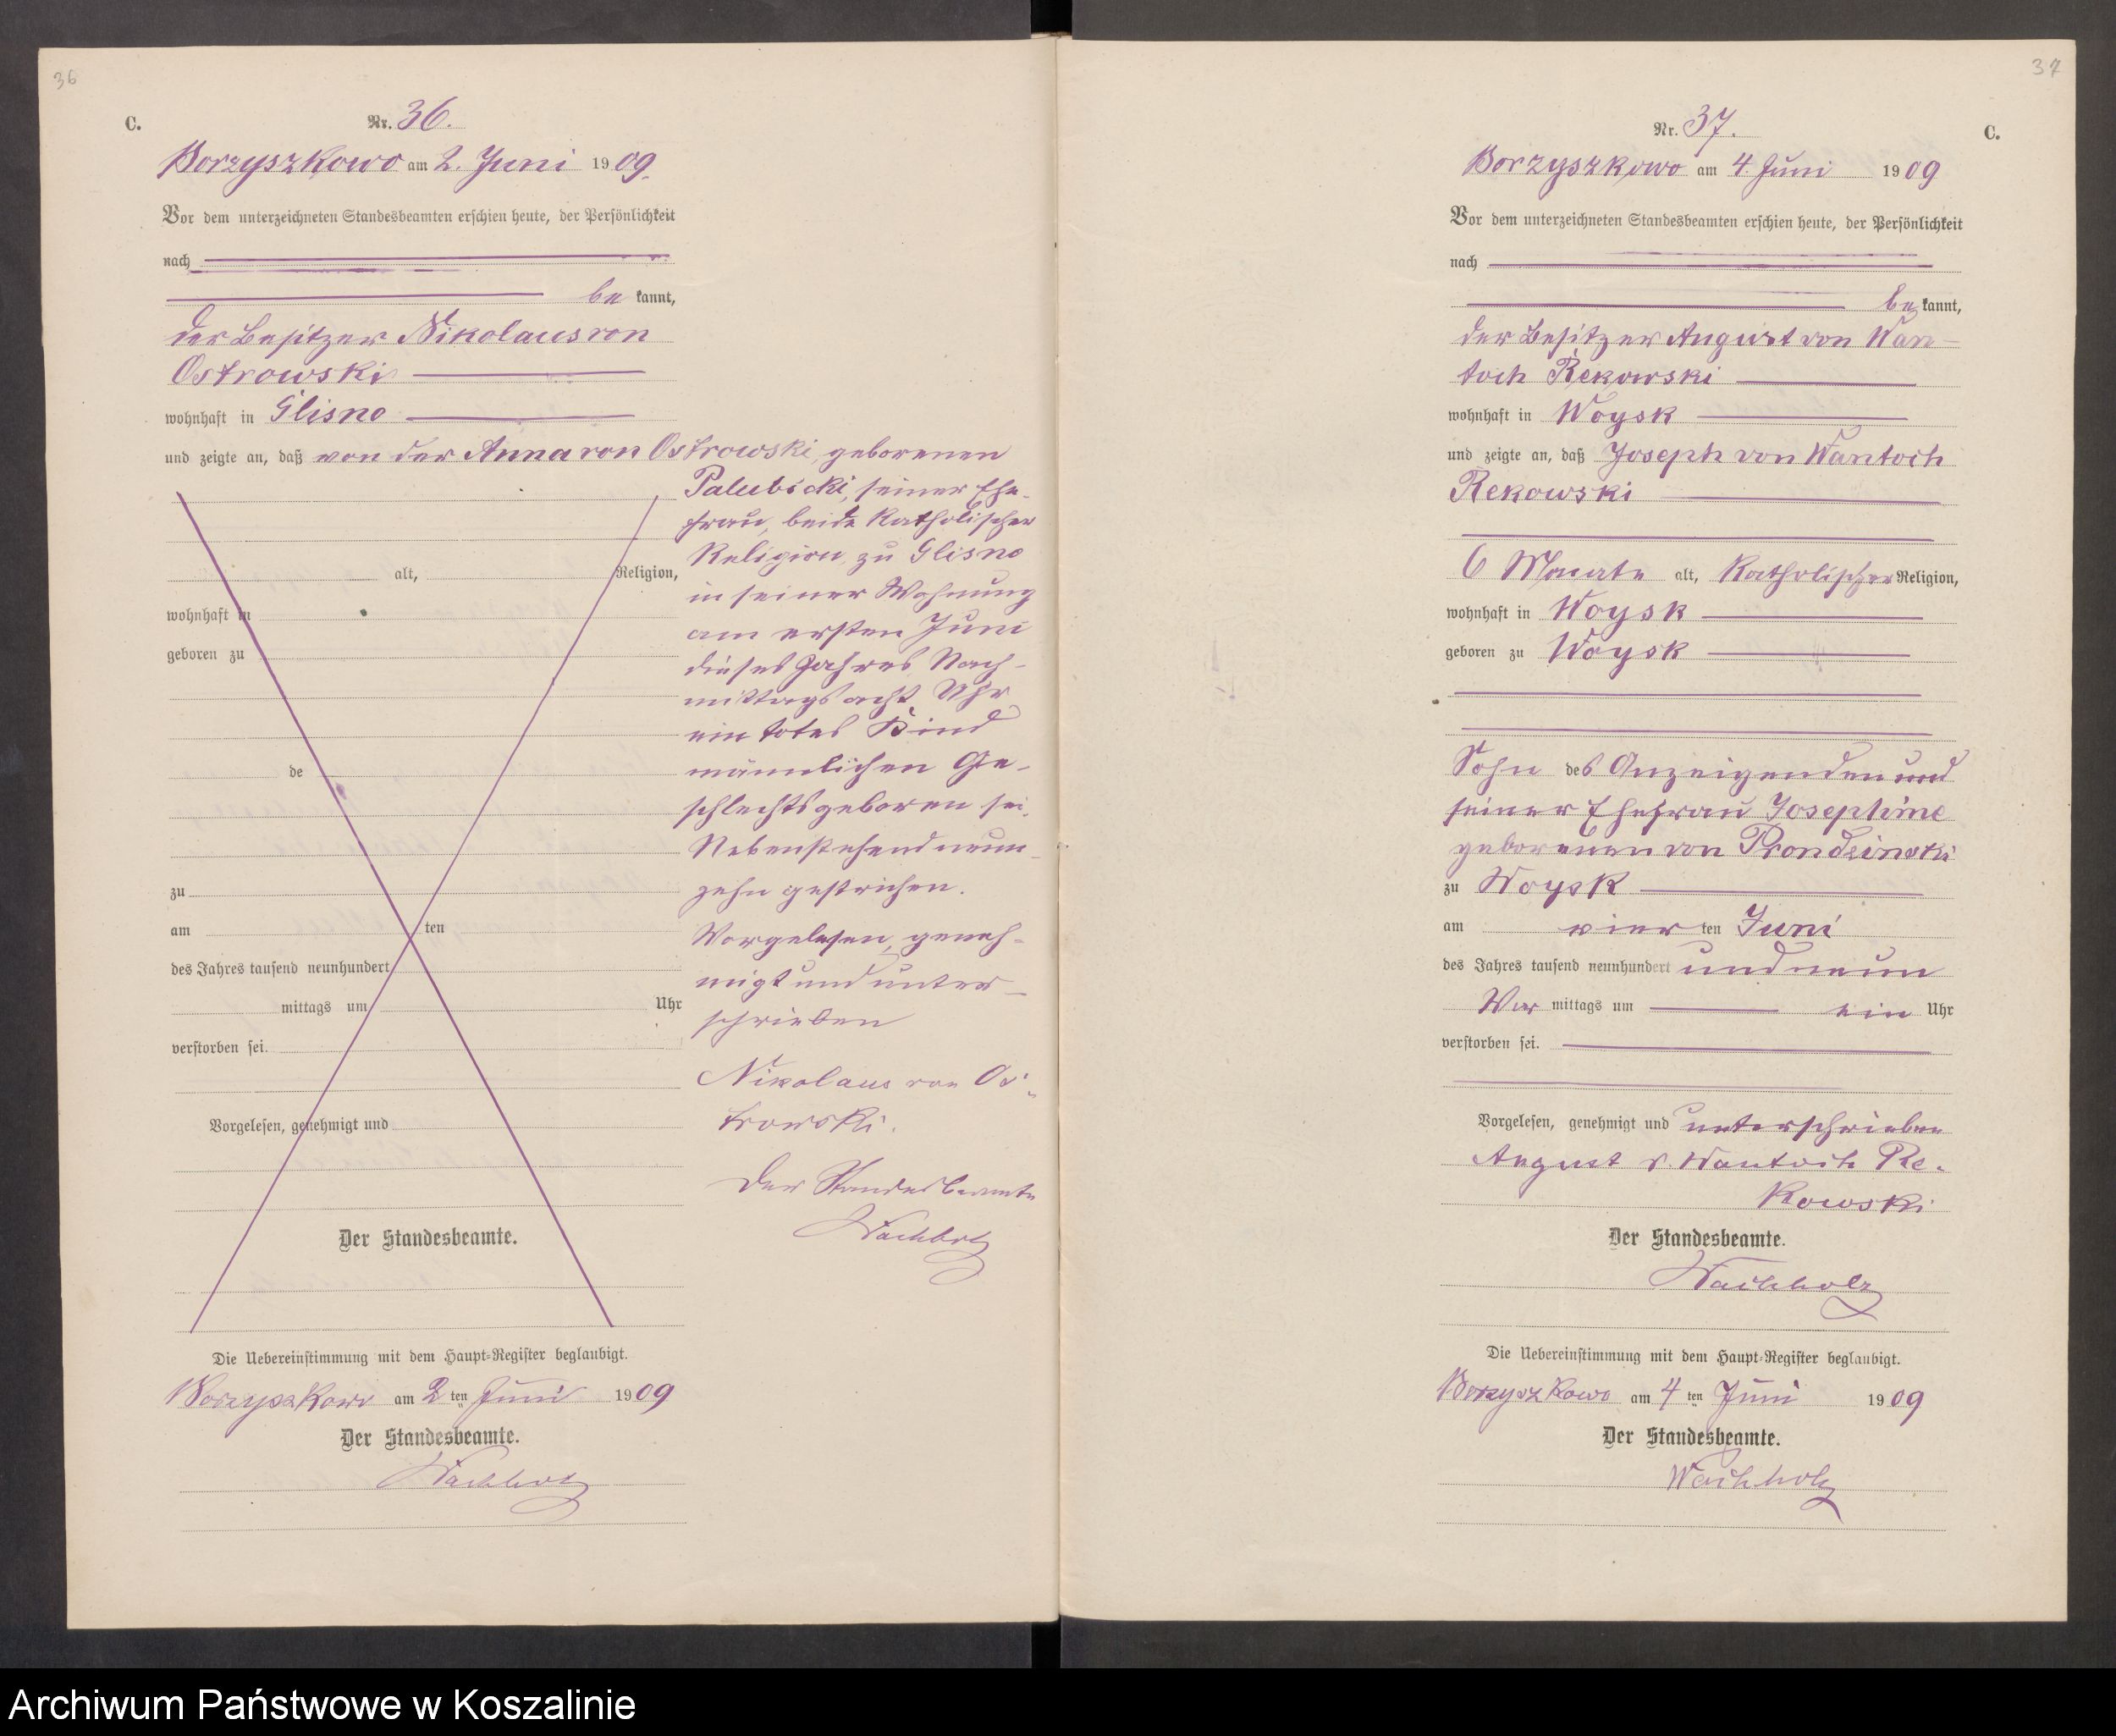 36
C.
Nr. 36.
Borzyszkowo am 2. Juni 1909.
Vor dem unterzeichneten Standesbeamten erschien heute, der Persönlichkeit
nach
be kannt,
der Besitzer Nikolaus von
Ostrowski
wohnhaft in Glisno
und zeigte an, daß von der Anna von Ostrowski, geborenen
Palubicki, seiner Ehe-
frau, beide katholischer
Religion, zu Glisno
in seiner Wohnung
am ersten Juni
dieses Jahres Nach-
mittags acht Uhr
ein totes Kind
männlichen Ge-
schlechts geboren sei.
Nebenstehend neun-
zehn gestrichen.
Vorgelesen, geneh-
migt und unter-
schrieben
Nikolaus von Os-
trowski.
Der Standesbeamte
Wachholz
alt, Religion,
wohnhaft in
geboren zu
de
zu
am ten
des Jahres tausend neunhundert
mittags um Uhr
verstorben sei.
Vorgelesen, genehmigt und
Der Standesbeamte.
Die Uebereinstimmung mit dem Haupt-Register beglaubigt.
Borzyszkowo am 2 ten Juni 1909
Der Standesbeamte.
Wachholz
37
C.
Nr. 37.
Borzyszkowo am 4. Juni 1909
Vor dem unterzeichneten Standesbeamten erschien heute, der Persönlichkeit
nach
be kannt,
der Besitzer August von Wan-
toch Rekowski
wohnhaft in Woysk
und zeigte an, daß Joseph von Wantoch
Rekowski
6 Monate alt, katholischer Religion,
wohnhaft in Woysk
geboren zu Woysk
Sohn des Anzeigenden und
seiner Ehefrau Josephine
geborenen von Prondzinski
zu Woysk
am vier ten Juni
des Jahres tausend neunhundert und neun
Vor mittags um ein Uhr
verstorben sei.
Vorgelesen, genehmigt und unterschrieben
August v. Wantoch Re-
kowski
Der Standesbeamte.
Wachholz
Die Uebereinstimmung mit dem Haupt-Register beglaubigt.
Borzyszkowo am 4 ten Juni 1909
Der Standesbeamte.
Wachholz
Archiwum Państwowe w Koszalinie